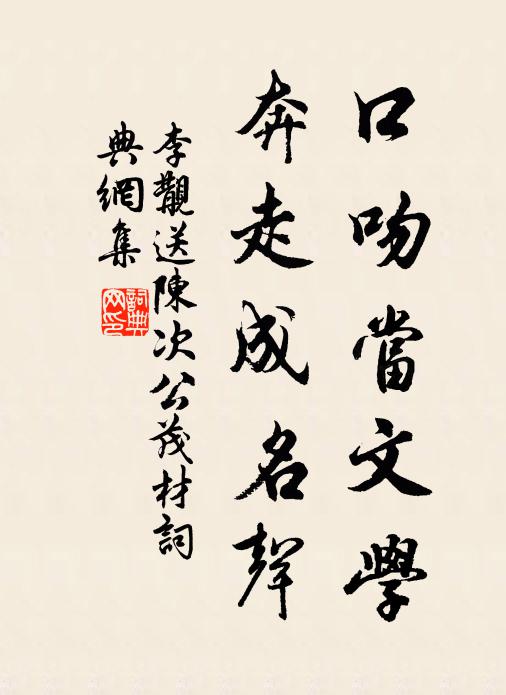 口吻當文學
奔走成名聲
李覯送陳次公茂材詞
典網集
詞典
网印